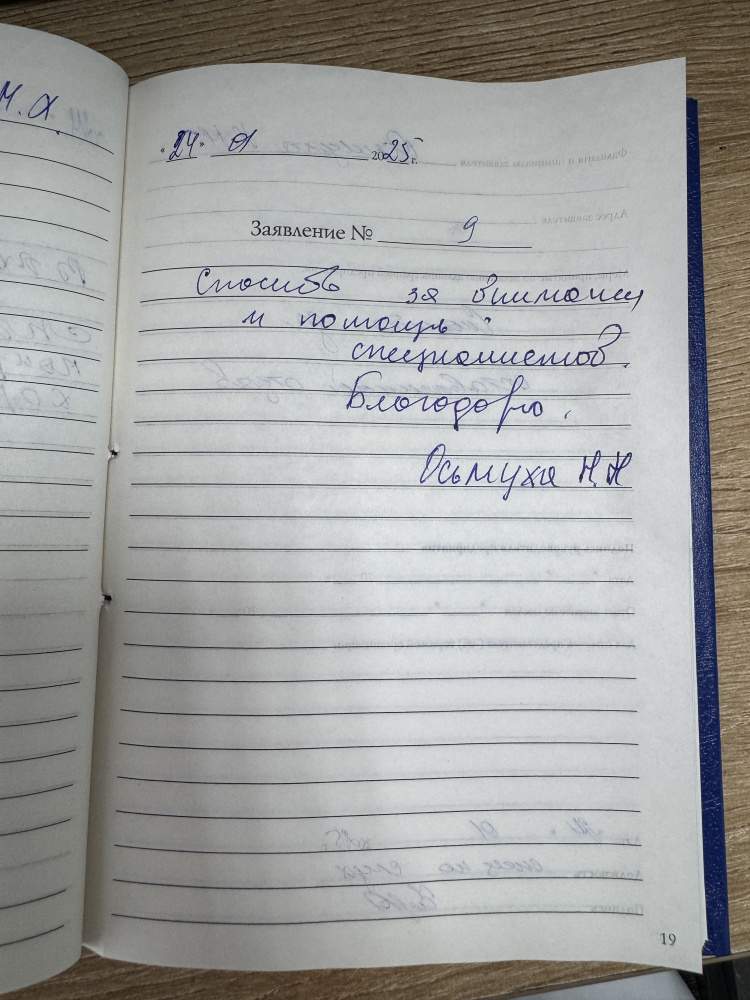 М. А.
"24" 01 2025 г.
Заявление № 9
Спасибо за внимание
и помощь
специалистов.
Благодарю.
Осьмуха Н.Н
19